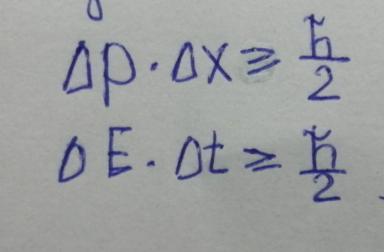 Δp·Δx ≥ ħ/2
ΔE·Δt ≥ ħ/2